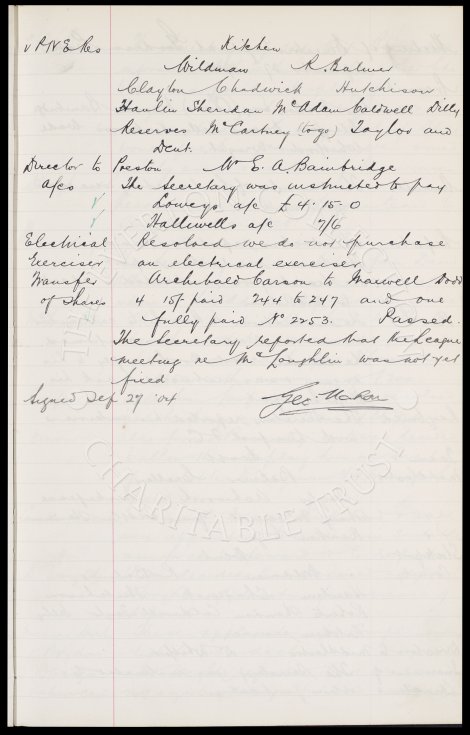 v P.N.E. Res Kitchen
Wildman R. Balmer
Clayton Chadwick Hutchison
Hamlin Sheridan McAdam Caldwell Dilly
Reserves McCartney (to go) Taylor and
Dent.
Director to Preston Mr E. A. Bainbridge
A/cs The Secretary was instructed to pay
Loweys a/c £4.15.0
Halliwells a/c 7/6
Electrical Resolved we do not purchase
Exerciser an electrical exerciser
Transfer Archibald Carson to Maxwell Dodd
of Shares 4 15/- paid 244 to 247 and one
fully paid No 2253. Passed.
The Secretary reported that the League
meeting re McLoughlin was not yet
fixed
Signed Sep 27 '04 Geo. Mahon
CHARITABLE TRUST